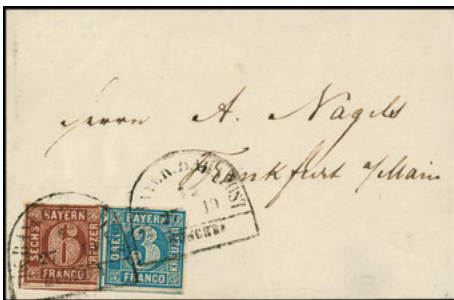 Herrn A. Nagels
Frankfurt a/Main
BAYERN
SECHS 6 KREUZER
FRANCO
BAYERN
DREI 3 KREUZER
FRANCO